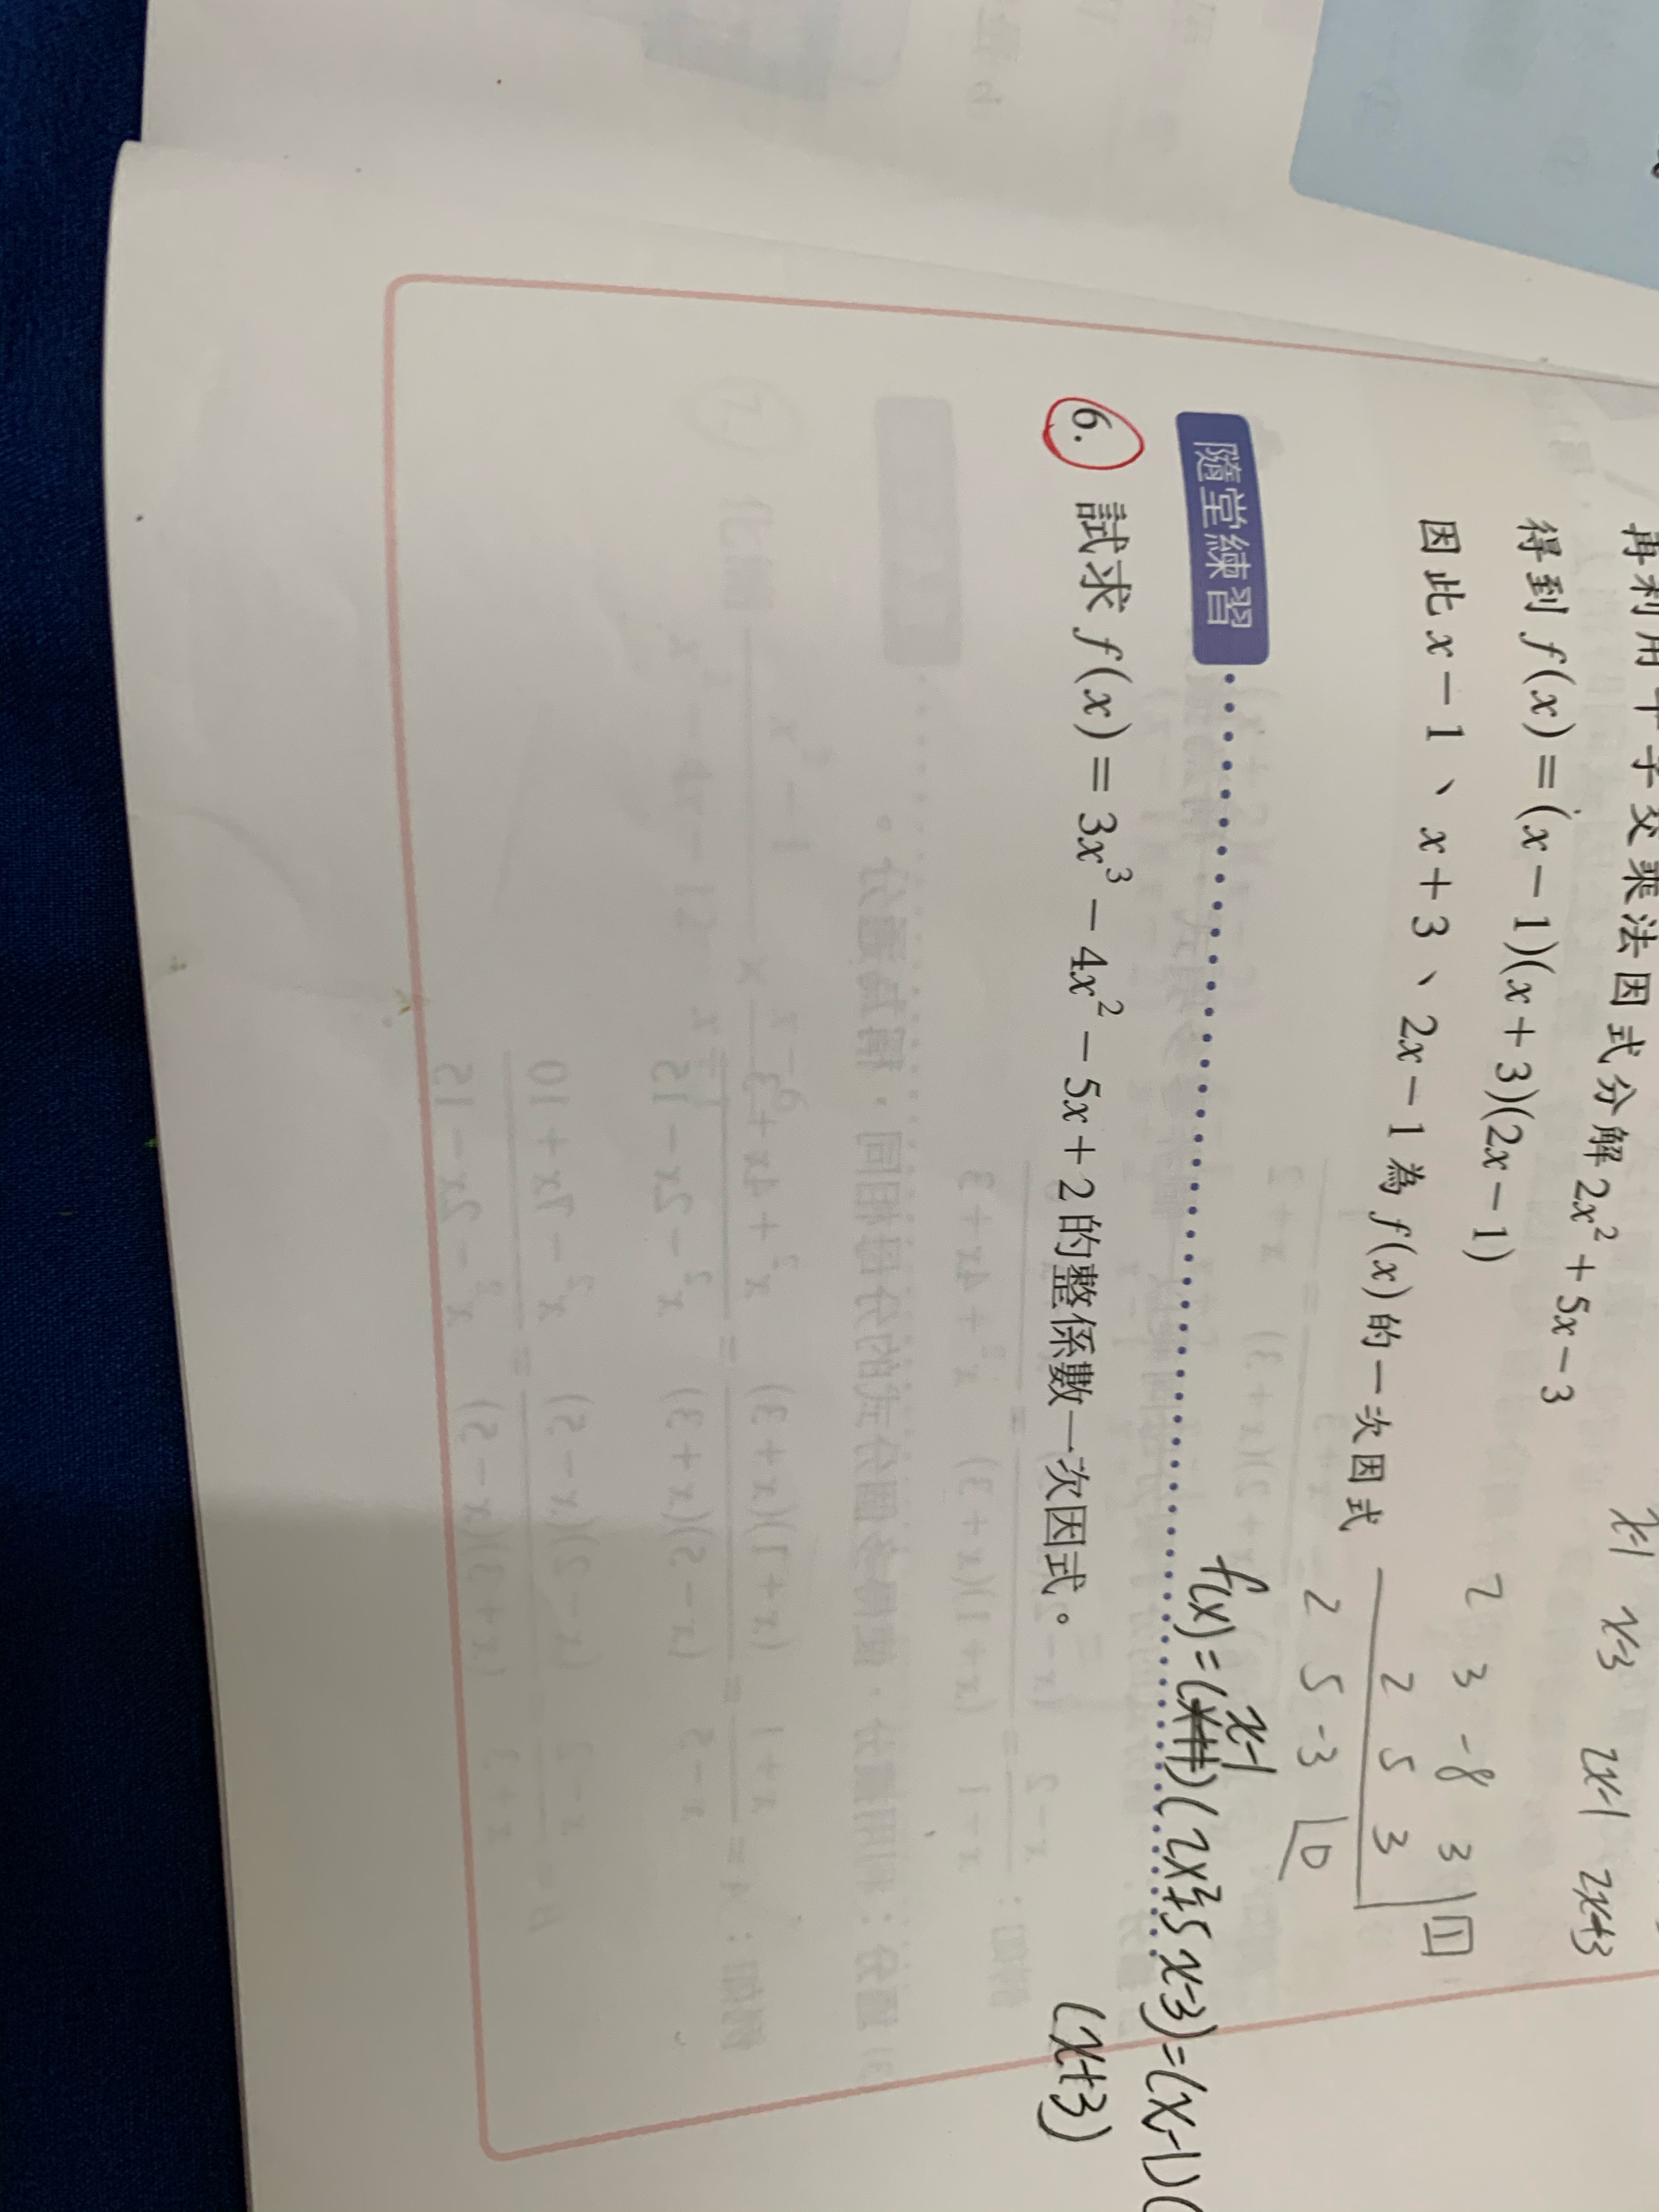 再利用十字交乘法因式分解 2x² + 5x − 3
得到 f(x) = (x − 1)(x + 3)(2x − 1)
因此 x − 1、x + 3、2x − 1 為 f(x) 的一次因式
x-1 x-3 2x-1 2x+3
2 3 -8 3 | 1
2 5 3
2 5 -3 | 0
隨堂練習
f(x) = (x+1) (2x²+5x-3) = (x-1)(
x-1
(x+3)
6. 試求 f(x) = 3x³ − 4x² − 5x + 2 的整係數一次因式。